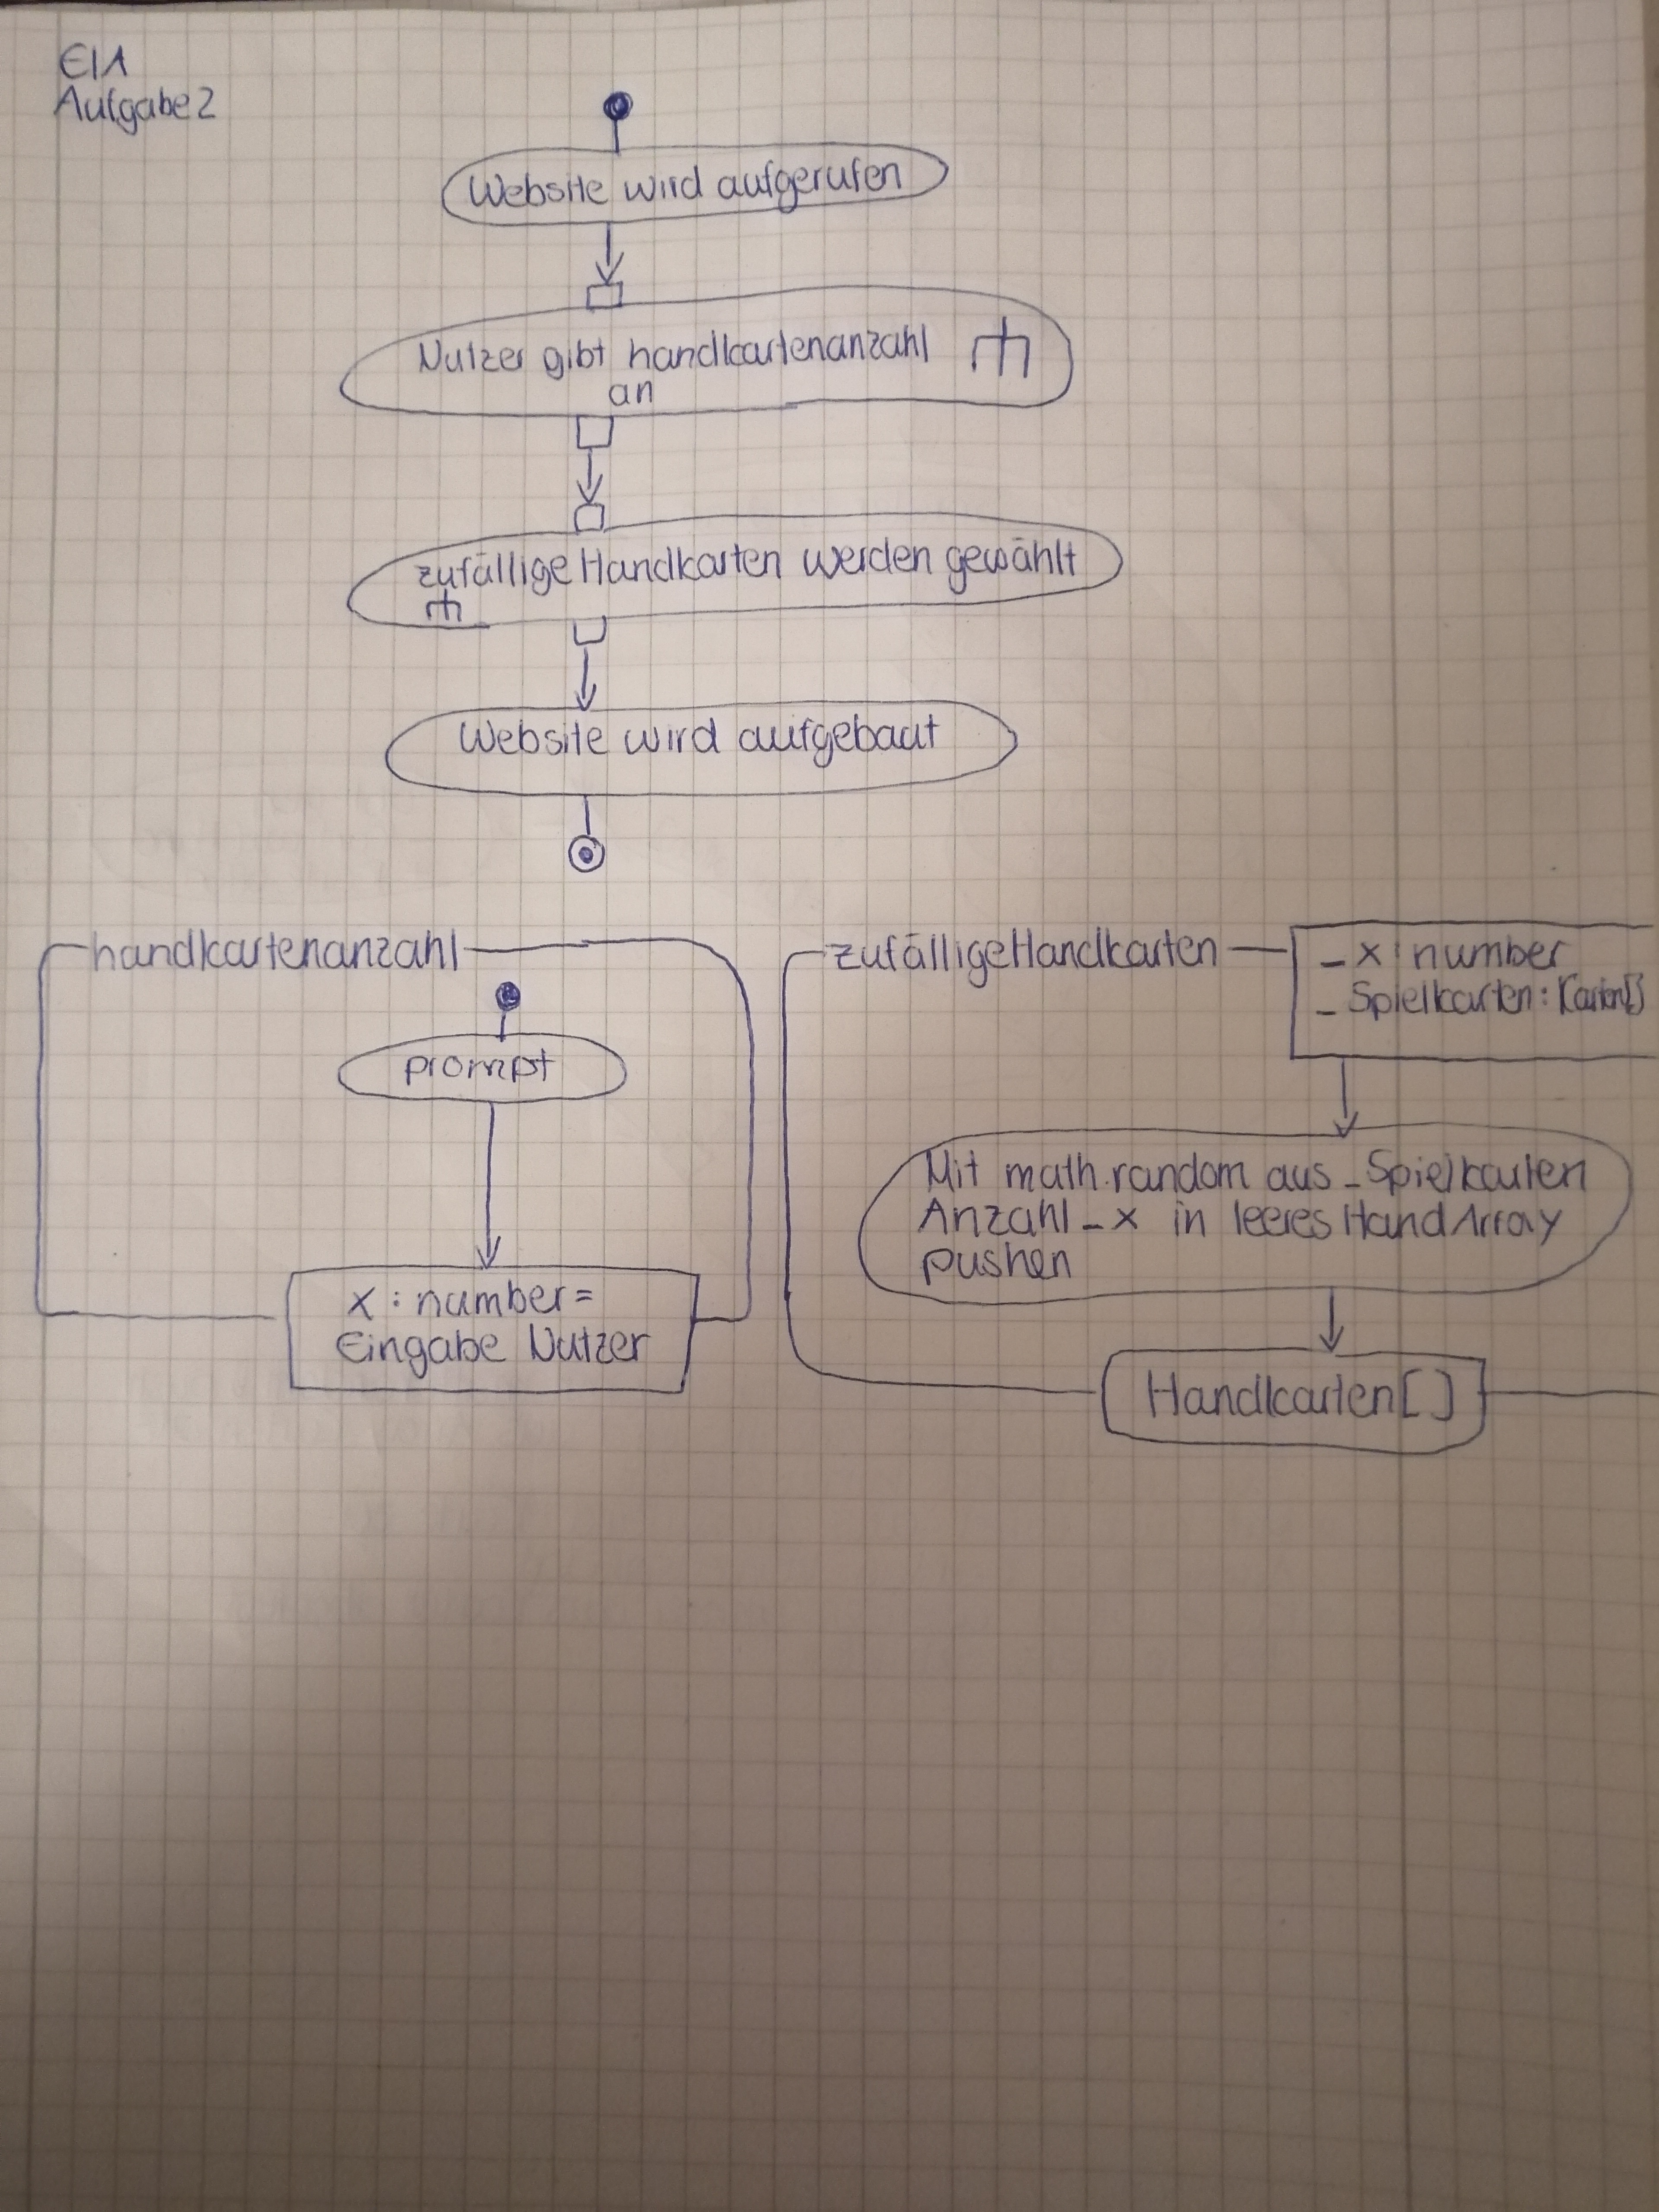 EIA
Aufgabe 2
Website wird aufgerufen
Nutzer gibt handkartenanzahl
an
zufällige Handkarten werden gewählt
Website wird aufgebaut
handkartenanzahl
prompt
x : number =
Eingabe Nutzer
zufälligeHandkarten
_ x : number
_ Spielkarten : Karten[]
Mit math.random aus _Spielkarten
Anzahl _x in leeres Hand Array
pushen
Handkarten[ ]